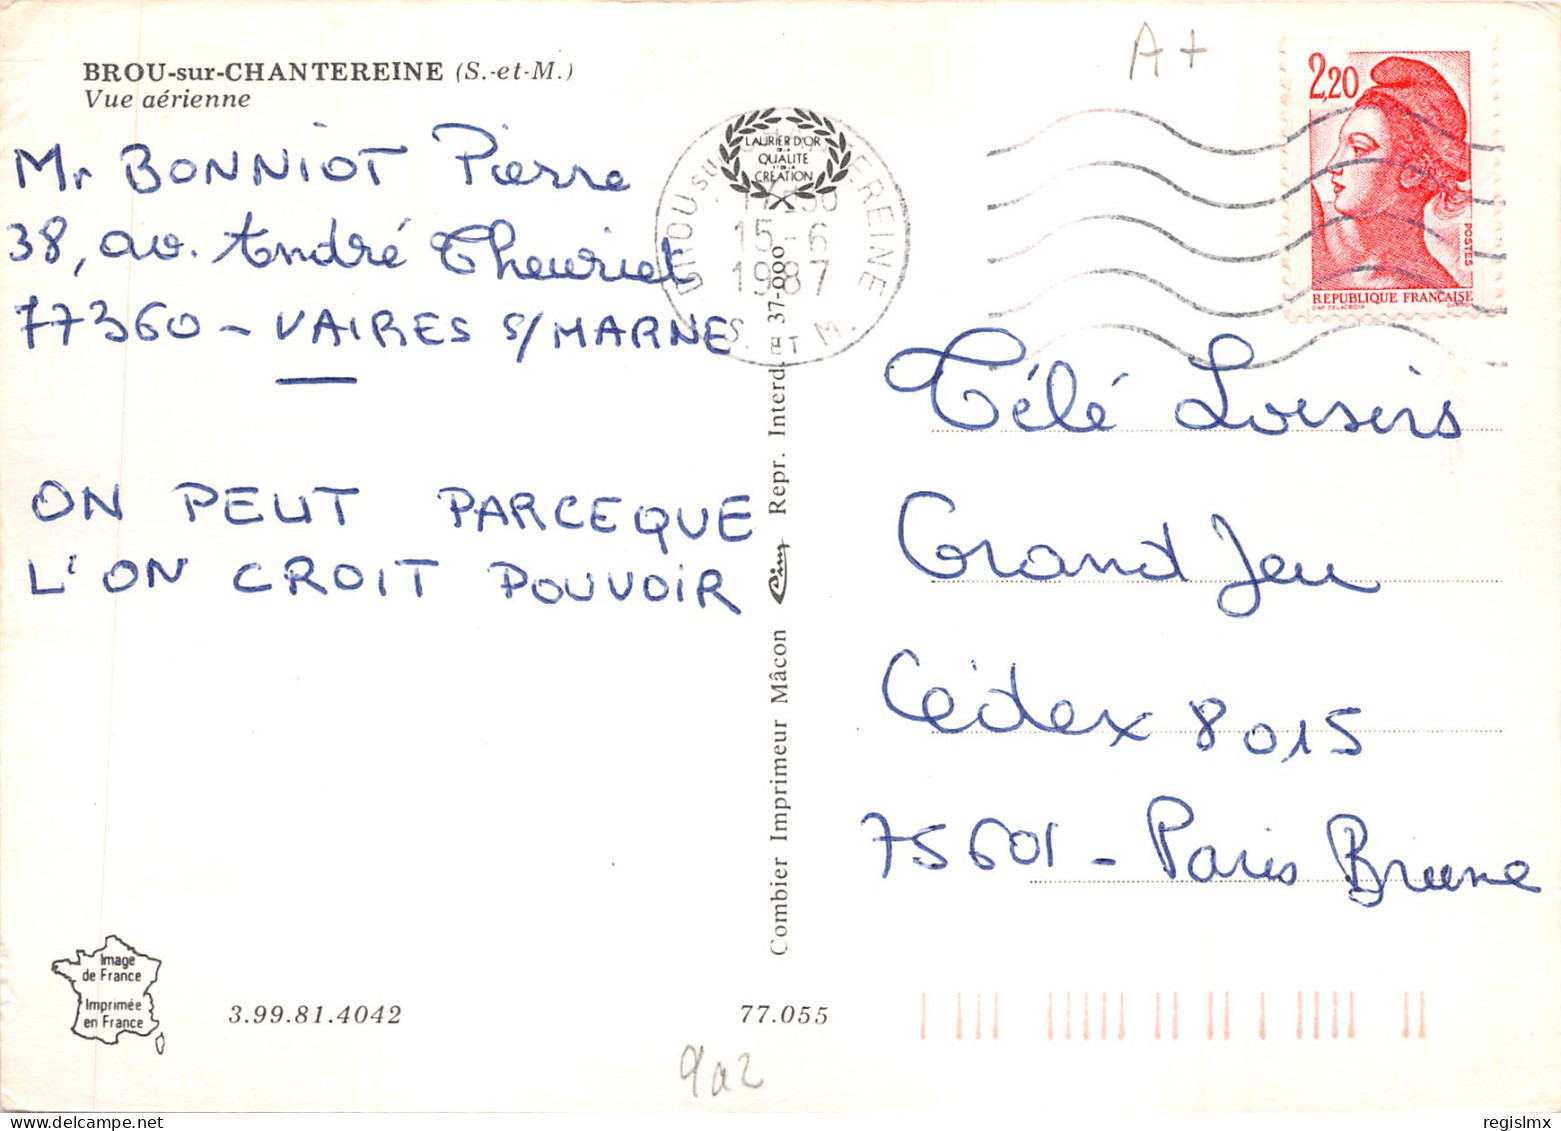 BROU-sur-CHANTEREINE (S.-et-M.)
Vue aérienne
Mr BONNIOT Pierre
38, av. André Theuriet
77360 - VAIRES S/MARNE
ON PEUT PARCEQUE
L'ON CROIT POUVOIR
Image
de France
Imprimée
en France
3.99.81.4042
77.055
9a2
Combier Imprimeur Mâcon Cim Repr. Interd. 37-000
LAURIER D'OR
DE LA
QUALITE
CREATION
BROU sur EREINE
15-6
1987
S. ET M.
A+
2,20
POSTES
REPUBLIQUE FRANÇAISE
Télé Loisirs
Grand Jeu
Cédex 8015
75601 - Paris Brune
regislmx